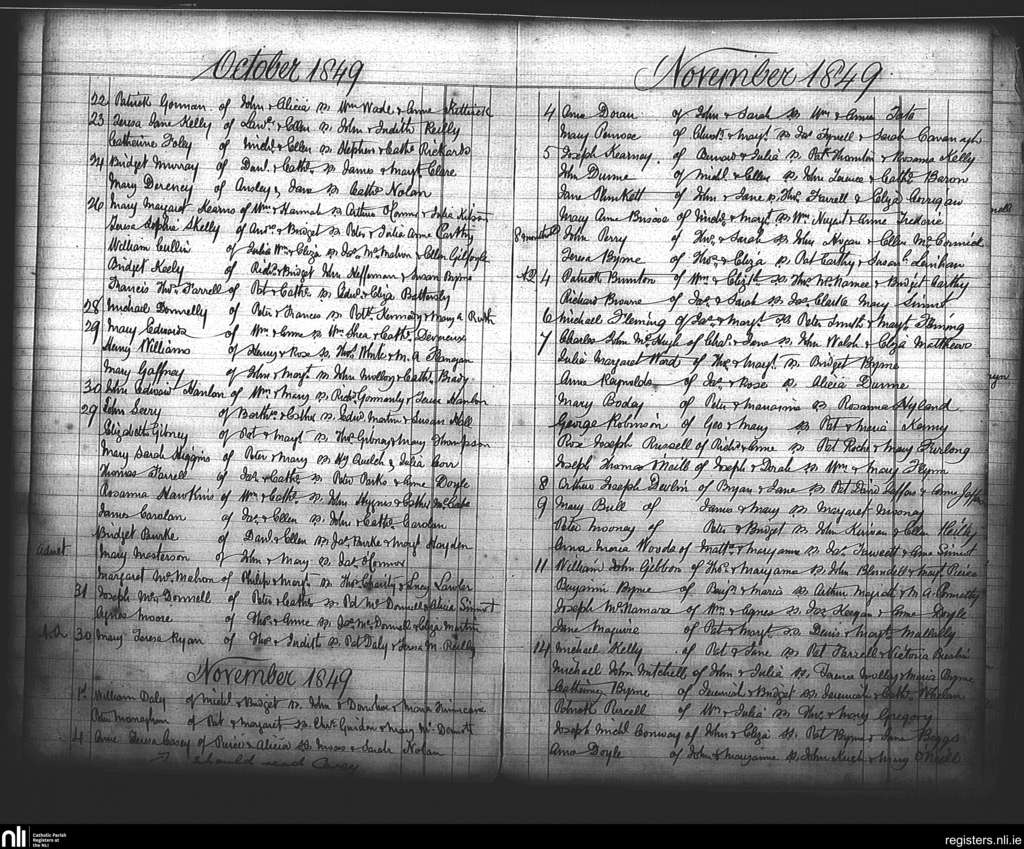 October 1849
22 Patrick Gorman of John & Alicia sp Wm Wade & Anne
23 Teresa Jane Kelly of Lawr. & Ellen sp John & Judith Reilly
Catherine Foley of Michl & Ellen sp Stephen & Cathe Rickards
24 Bridget Murray of Danl & Cathe sp James & Margt Clare
Mary Dereney of & Jane sp Cathe Nolan
26 Mary Margaret Kearns of Wm & Hannah sp Arthur & Julia
Teresa Sophia Shelly of Andw & Bridget sp Peter & Julia Anne Carthy
William Cullin of Wm & Eliza sp Jas McMahon & Ellen Gilfoyle
Bridget Keely of Richd & Bridget John Heffernan & Susan Byrne
Francis Thos Farrell of Pat & Cathe sp Edwd & Eliza Battersby
28 Michael Donnelly of Peter & Frances sp Patk Kennedy & Mary A Ruth
29 Mary Edwards of Wm & Anne sp Wm Shea & Cathe Devereux
Henry Williams of Henry & Rose sp Thos & M. A Flanagan
Mary Gaffney of John & Margt sp John Molloy & Cathe Brady
30 John Edward Hanlon of Wm & Mary sp Richd Gormanly & Jane Hanlon
29 John Serry of Barthw & Esther sp Edwd Martin & Susan Hall
Elizabeth Gibney of Pat & Margt sp Thos Gibney & Mary Thompson
Mary Sarah Higgins of Peter & Mary sp Hy & Julia Corr
Thomas Farrell of Jas & Cathe sp Peter Parks & Anne Doyle
Rosanna Hawkins of Wm & Cathe sp John Hynes & Esther McCabe
James Carolan of Jas & Ellen sp John & Cathe Carolan
Bridget Burke of Danl & Ellen sp Jas Burke & Margt Hayden
Mary Masterson of John & Mary sp Jas Connor
Margaret McMahon of Philip & Margt sp Thos & Lucy Lawlor
31 Joseph McDonnell of Peter & Cathe sp Pat McDonnell & Alicia Sinnot
Agnes Moore of Thos & Anne sp Jas McDonnell & Eliza Martin
30 Mary Teresa Ryan of Thos & Judith sp Pat Daly & Teresa M. Reilly
November 1849
1st William Daly of Michl & Bridget sp John & Maria
Peter Monaghan of Pat & Margaret sp Chrisr & Mary McDermott
4 Anne Teresa Casey of & Alicia sp & Sarah Nolan
should read Carey
November 1849
4 Anne Doran of John & Sarah sp Wm & Anne Tate
Mary Penrose of & Mary sp Jas Tyrrell & Sarah Cavanagh
5 Joseph Kearney of Bernard & Julia sp Pat Thornton & Rosanna Kelly
John Dunne of Michl & Ellen sp John & Cathe Baron
Jane Plunkett of John & Jane sp Thos Farrell & Eliza Corrigan
Mary Anne Briscoe of Michl & Mary sp Wm Nugent & Anne
8 months John Perry of Thos & Sarah sp John & Ellen McCormick
Teresa Byrne of Thos & Eliza sp Pat Carthy & Susan Lenihan
4 Patrick Brunton of Wm & Elizth sp Thos McNamee & Bridget Carthy
Richard Browne of Jas & Sarah sp Jas Clarke Mary Sinnot
6 Michael Fleming of Jas & Margt sp Peter Smith & Margt Fleming
7 Charles John McHugh of Chas & Jane sp John Walsh & Eliza Matthews
Julia Margaret Ward of Thos & Margt sp Bridget Byrne
Anne Reynolds of Jas & Rose sp Alicia Dunne
Mary Boday of Peter & sp Rosanna Hyland
George Robinson of Geo & Mary sp Pat & Maria Kenny
Rose Joseph Russell of Richd & Anne sp Pat Roche & Mary Furlong
Joseph Thomas O'Neill of Joseph & Sarah sp Wm & Mary Flynn
8 Arthur Joseph Devlin of Bryan & Jane sp Pat & Anne
9 Mary Bull of James & Mary sp Margaret Mooney
Peter Mooney of Peter & Bridget sp John Kirwan & Ellen
Anna Maria Woods of Matt. & Maryanne sp Jas Fawcett & Anne Sinnot
11 William John Gibbon of Thos & Maryanne sp John Blundell & Margt Pierce
Benjamin Byrne of Benjn & Maria sp Arthur & M. A.
Joseph McNamara of Wm & Agnes sp Jas Keegan & Anne Doyle
Jane Maguire of Pat & Margt sp Denis & Margt Mulally
14 Michael Kelly of Pat & Jane sp Pat Farrell & Victoria
Michael John Mitchell of John & Julia sp Molloy & Maria Byrne
Catherine Byrne of Jeremiah & Bridget sp Jeremiah & Cathe Whelan
Patrick Purcell of Wm & Julia sp Thos & Mary Gregory
Joseph Michl Conway of John & Eliza sp Pat Byrne & Jane Biggs
Anne Doyle of John & Maryanne sp John Hugh & Mary O'Neill
nli
Catholic Parish
Registers at
the NLI
registers.nli.ie